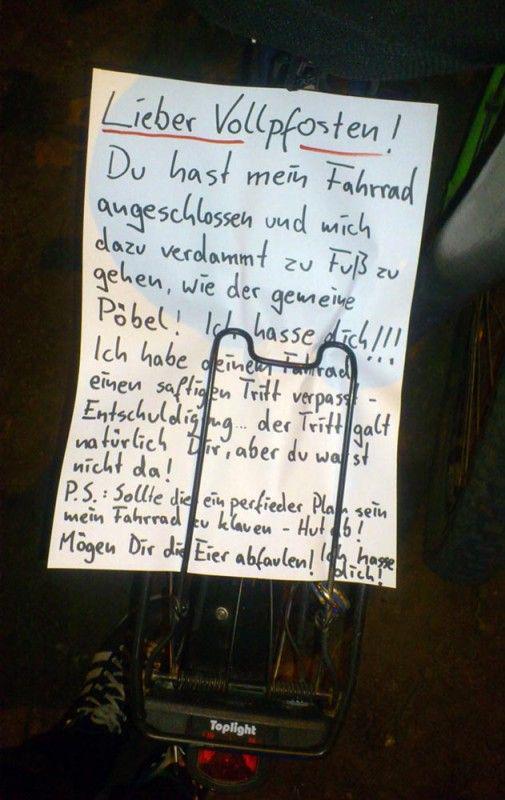 Lieber Vollpfosten!
Du hast mein Fahrrad
angeschlossen und mich
dazu verdammt zu Fuß zu
gehen, wie der gemeine
Pöbel! Ich hasse dich!!!
Ich habe deinem Fahrrad
einen saftigen Tritt verpasst -
Entschuldigung... der Tritt galt
natürlich Dir, aber du warst
nicht da!
P.S.: Sollte dies ein perfieder Plan sein
mein Fahrrad zu klauen - Hut ab!
Mögen Dir die Eier abfaulen! Ich hasse
dich!
Toplight